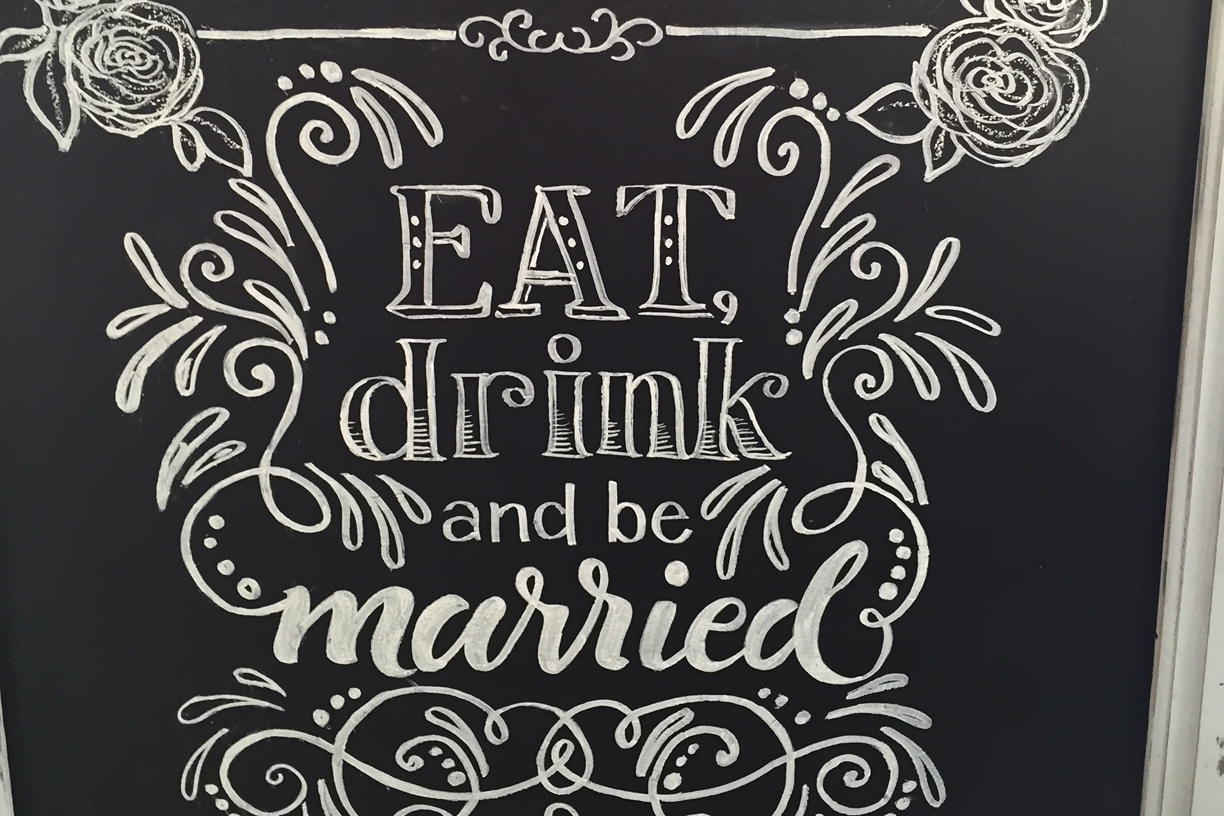 EAT,
drink
and be
married